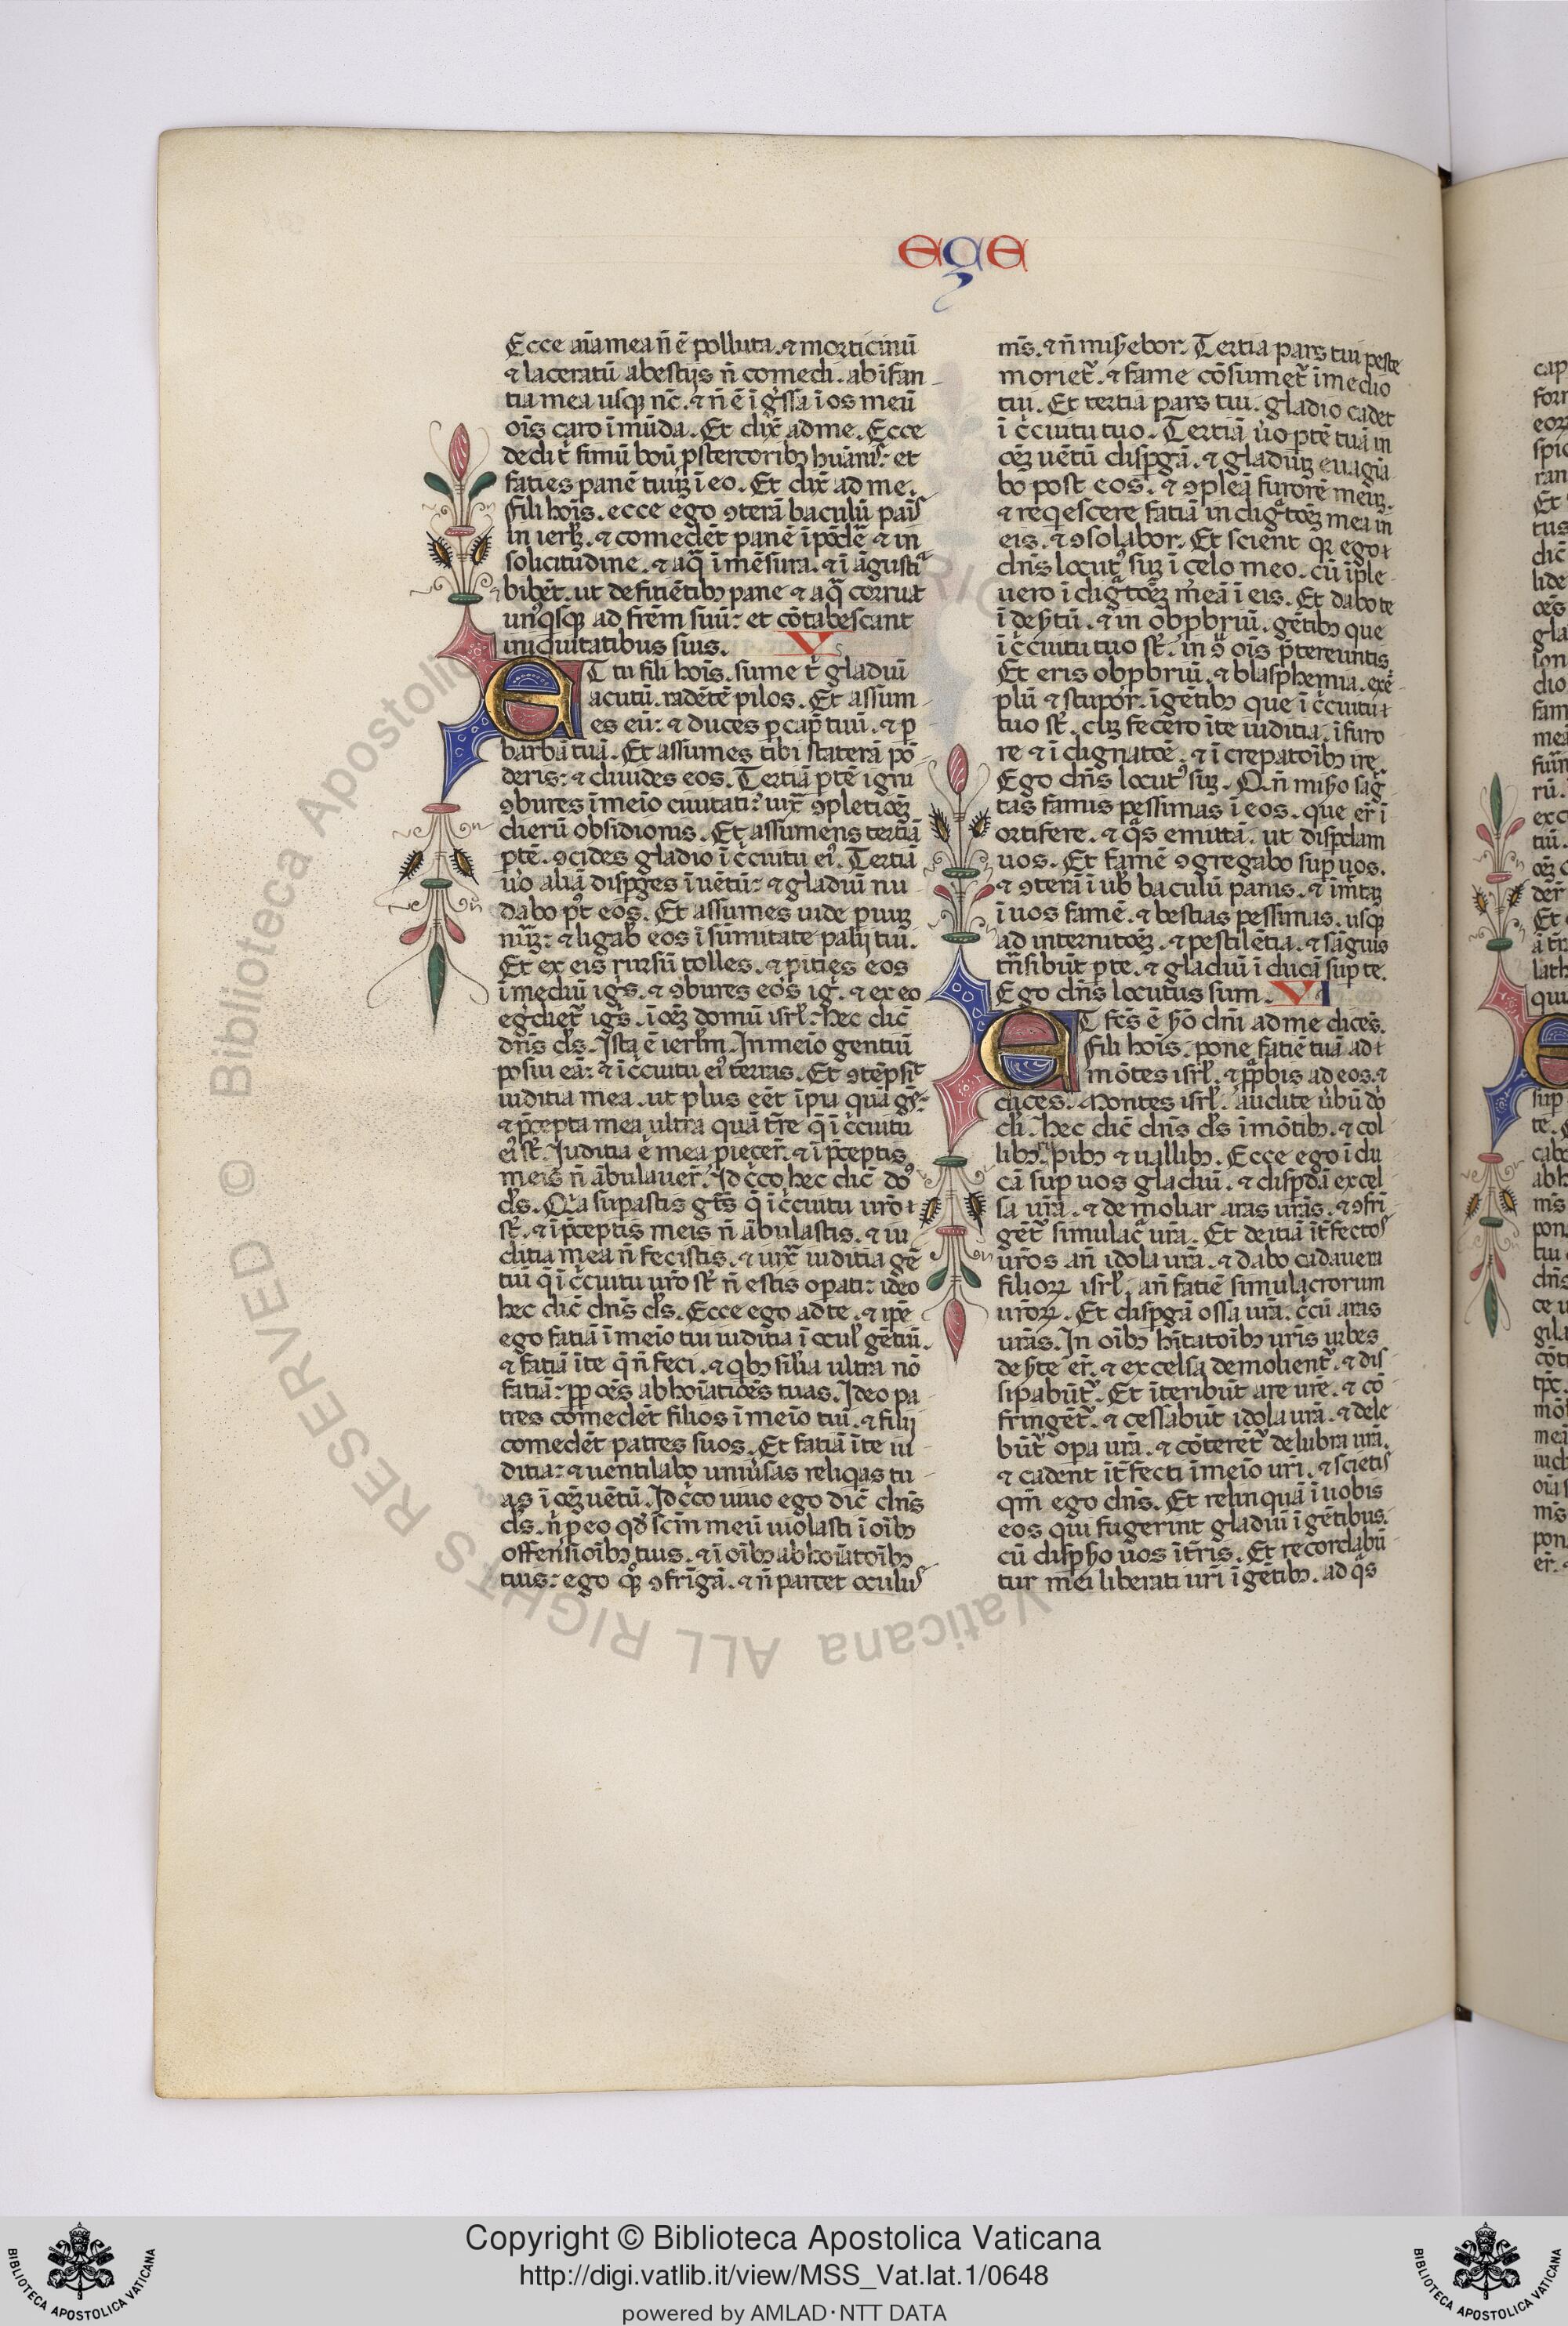 eçe
Ecce aīa mea n̄ ē polluta. ⁊ morticinū
⁊ laceratū abestijs n̄ comedi. ab īfan
tia mea usq; nc̄. ⁊ n̄ ē īgr̄ssa ī os meū
oīs caro īmūda. Et dix̄ ad me. Ecce
dedi t̄ fimū boū p stercorib; huānis: et
faties panē tuuȝ ī eo. Et dix̄ ad me.
Fili hoīs. ecce ego ꝯterā baculū paīs
In ierlȝ. ⁊ comedēt panē ī pōdē ⁊ in
solicitudine. ⁊ aq̄ ī mēsura. ⁊ ī āgustia
bibēt. ut defitiētib; pane ⁊ aq̄ corruat
unꝰqsq; ad frēm suū: et cōtabescant
iniquitatibus suis. V
ET tu fili hoīs. sume t̄ gladiū
acutū. radētē pilos. Et assum
es eū: ⁊ duces p cap̄ tuū. ⁊ p
barbā tuā. Et assumes tibi staterā pō
deris: ⁊ diuides eos. Tertiā ptē igni
ꝯbures ī meīo ciuitatis: iux̄ ꝯpletioēȝ
dierū obsidionis. Et assumens tertiā
ptē. ꝯcides gladio ī c̄cuitu eiꝰ. Tertiā
ūo aliā dispges ī uētū: ⁊ gladiū nu
dabo pꝰt eos. Et assumes inde p̄uuȝ
nūȝ: ⁊ ligab̄ eos ī sūmitate palij tui.
Et ex eis rursū tolles. ⁊ p̄ities eos
ī mediū igīs. ⁊ ꝯbures eos igī. ⁊ ex eo
eḡdiet᷑ igīs. ī oēȝ domū isrl̄. Hec dic̄
dn̄s ds̄. Ista ē ierlm̄. In meīo gentiū
posui eā: ⁊ ī c̄cuitu eiꝰ terras. Et ꝯtēpsit
iuditia mea. ut plus eēt īpia quā gē:
⁊ p̄cepta mea ultra quā tr̄e q̄ ī c̄cuitu
eiꝰ st̄. Iuditia ē mea p̄iecer̄. ⁊ ī p̄ceptis
meis n̄ ābulauer̄. Id c̄co hec dic̄ doꝰ
ds̄. Q̄a supastis gēs q̄ ī c̄cuitu uro
st̄. ⁊ ī p̄ceptis meis n̄ ābulastis. ⁊ iu
ditia mea n̄ fecistis. ⁊ iux̄ iuditia gē
tiū q̄ ī c̄cuitu uro st̄ n̄ estis opati: ideo
hec dic̄ dn̄s ds̄. Ecce ego ad te. ⁊ ipē
ego fatiā ī meīo tui iuditia ī ocul̄ gētiū.
⁊ fatiā īte q̄ n̄ feci. ⁊ qb; silia ultra nō
fatiā: pp̄ oēs abhoīatioēs tuas. Ideo pa
tres comedēt filios ī meīo tui. ⁊ filij
comedēt patres suos. Et fatiā īte iu
ditia: ⁊ uentilabo uniūsas reliqas tu
as ī oēȝ uētū. Id c̄co uiuo ego dic̄ dn̄s
ds̄. n̄ p eo qd̄ sc̄m meū uiolasti ī oīb;
offensioīb; tuis. ⁊ ī oīb; abhoīatoīb;
tuis: ego qꝫ ꝯfrīgā. ⁊ n̄ parcet oculus
ms̄. ⁊ n̄ mis̄ebor. Tertia pars tui peste
moriet᷑. ⁊ fame cōsumet᷑ ī medio
tui. Et tertia pars tui. gladio cadet
ī c̄cuitu tuo. Tertiā ūo ptē tuā in
oēȝ uētū dispgā. ⁊ gladiuȝ euagīa
bo post eos. ⁊ ꝯpleā furorē meuȝ.
⁊ reqescere fatiā indigtōēȝ meā in
eis. ⁊ ꝯsolabor. Et scient qꝛ ego
dn̄s locutꝰ suȝ ī celo meo. cū īple
uero īdigtōēȝ meā ī eis. Et dabo te
ī desꝰtū. ⁊ in obpbriū. gētib; que
ī c̄cuitu tuo st̄. in ꝯsꝰ oīs p̄tereuntis
Et eris obpbriū. ⁊ blasphemia. exē
plū ⁊ stupor. ī gētib; que ī c̄cuitu
tuo st̄. cuȝ fecero īte iuditia. ī furo
re ⁊ ī dignatōe. ⁊ ī crepatoīb; ire.
Ego dn̄s locutꝰ suȝ. Qn̄ misꝰo sag
tas famis pessimas ī eos. que er̄ ī
ortifere. ⁊ q̄s emittā. ut dispdam
uos. Et famē ꝯgregabo sup uos.
⁊ ꝯterā ī ub̄ baculū panis. ⁊ īmitaȝ
ī uos famē. ⁊ bestias pessimas. usq;
ad internitōēȝ. ⁊ pestilētia. ⁊ sāguis
trn̄sibūt p te. ⁊ gladiū īducā sup te.
Ego dn̄s locutus sum. VI
ET fcs̄ ē sꝰō dn̄i ad me dices̄.
Fili hoīs. pone fatiē tuā ad
mōtes isrl̄. ⁊ ppħbis ad eos. ⁊
dices. Montes isrl̄. audite ūbū dō
di. Hec dic̄ dn̄s ds̄ ī mōtib;. ⁊ col
lib;. rupib; ⁊ uallib;. Ecce ego īdu
cā sup uos gladiū. ⁊ dispdā excel
sa urā. ⁊ demoliar aras urās. ⁊ ꝯfrī
gēt᷑ simulac̄ urā. Et deitiā īt̄fectos
uros an̄ idola urā. ⁊ dabo cadauera
filioꝝ isrl̄. an̄ fatiē simulacrorum
uroꝝ. Et dispgā ossa urā. c̄cū aras
urās. In oīb; hītatoīb; uris urbes
desꝰte er̄. ⁊ excelsa demolient᷑. ⁊ dis
sipabūt᷑. Et īteribūt are ure. ⁊ cō
fringēt᷑. ⁊ cessabūt idola urā. ⁊ dele
būt᷑ opa urā. ⁊ cōterēt᷑ delubra urā.
⁊ cadent īt̄fecti ī meīo uri. ⁊ scietis
qm̄ ego dn̄s. Et relinquā ī uobis
eos qui fugerint gladiū ī gētibus.
cū dispsꝰo uos ī tr̄is. Et recordabū
tur mei liberati uri ī gētib;. ad q̄s
Copyright © Biblioteca Apostolica Vaticana
http://digi.vatlib.it/view/MSS_Vat.lat.1/0648
powered by AMLAD·NTT DATA
BIBLIOTECA APOSTOLICA VATICANA
BIBLIOTECA APOSTOLICA VATICANA
© Biblioteca Apostolica Vaticana ALL RIGHTS RESERVED